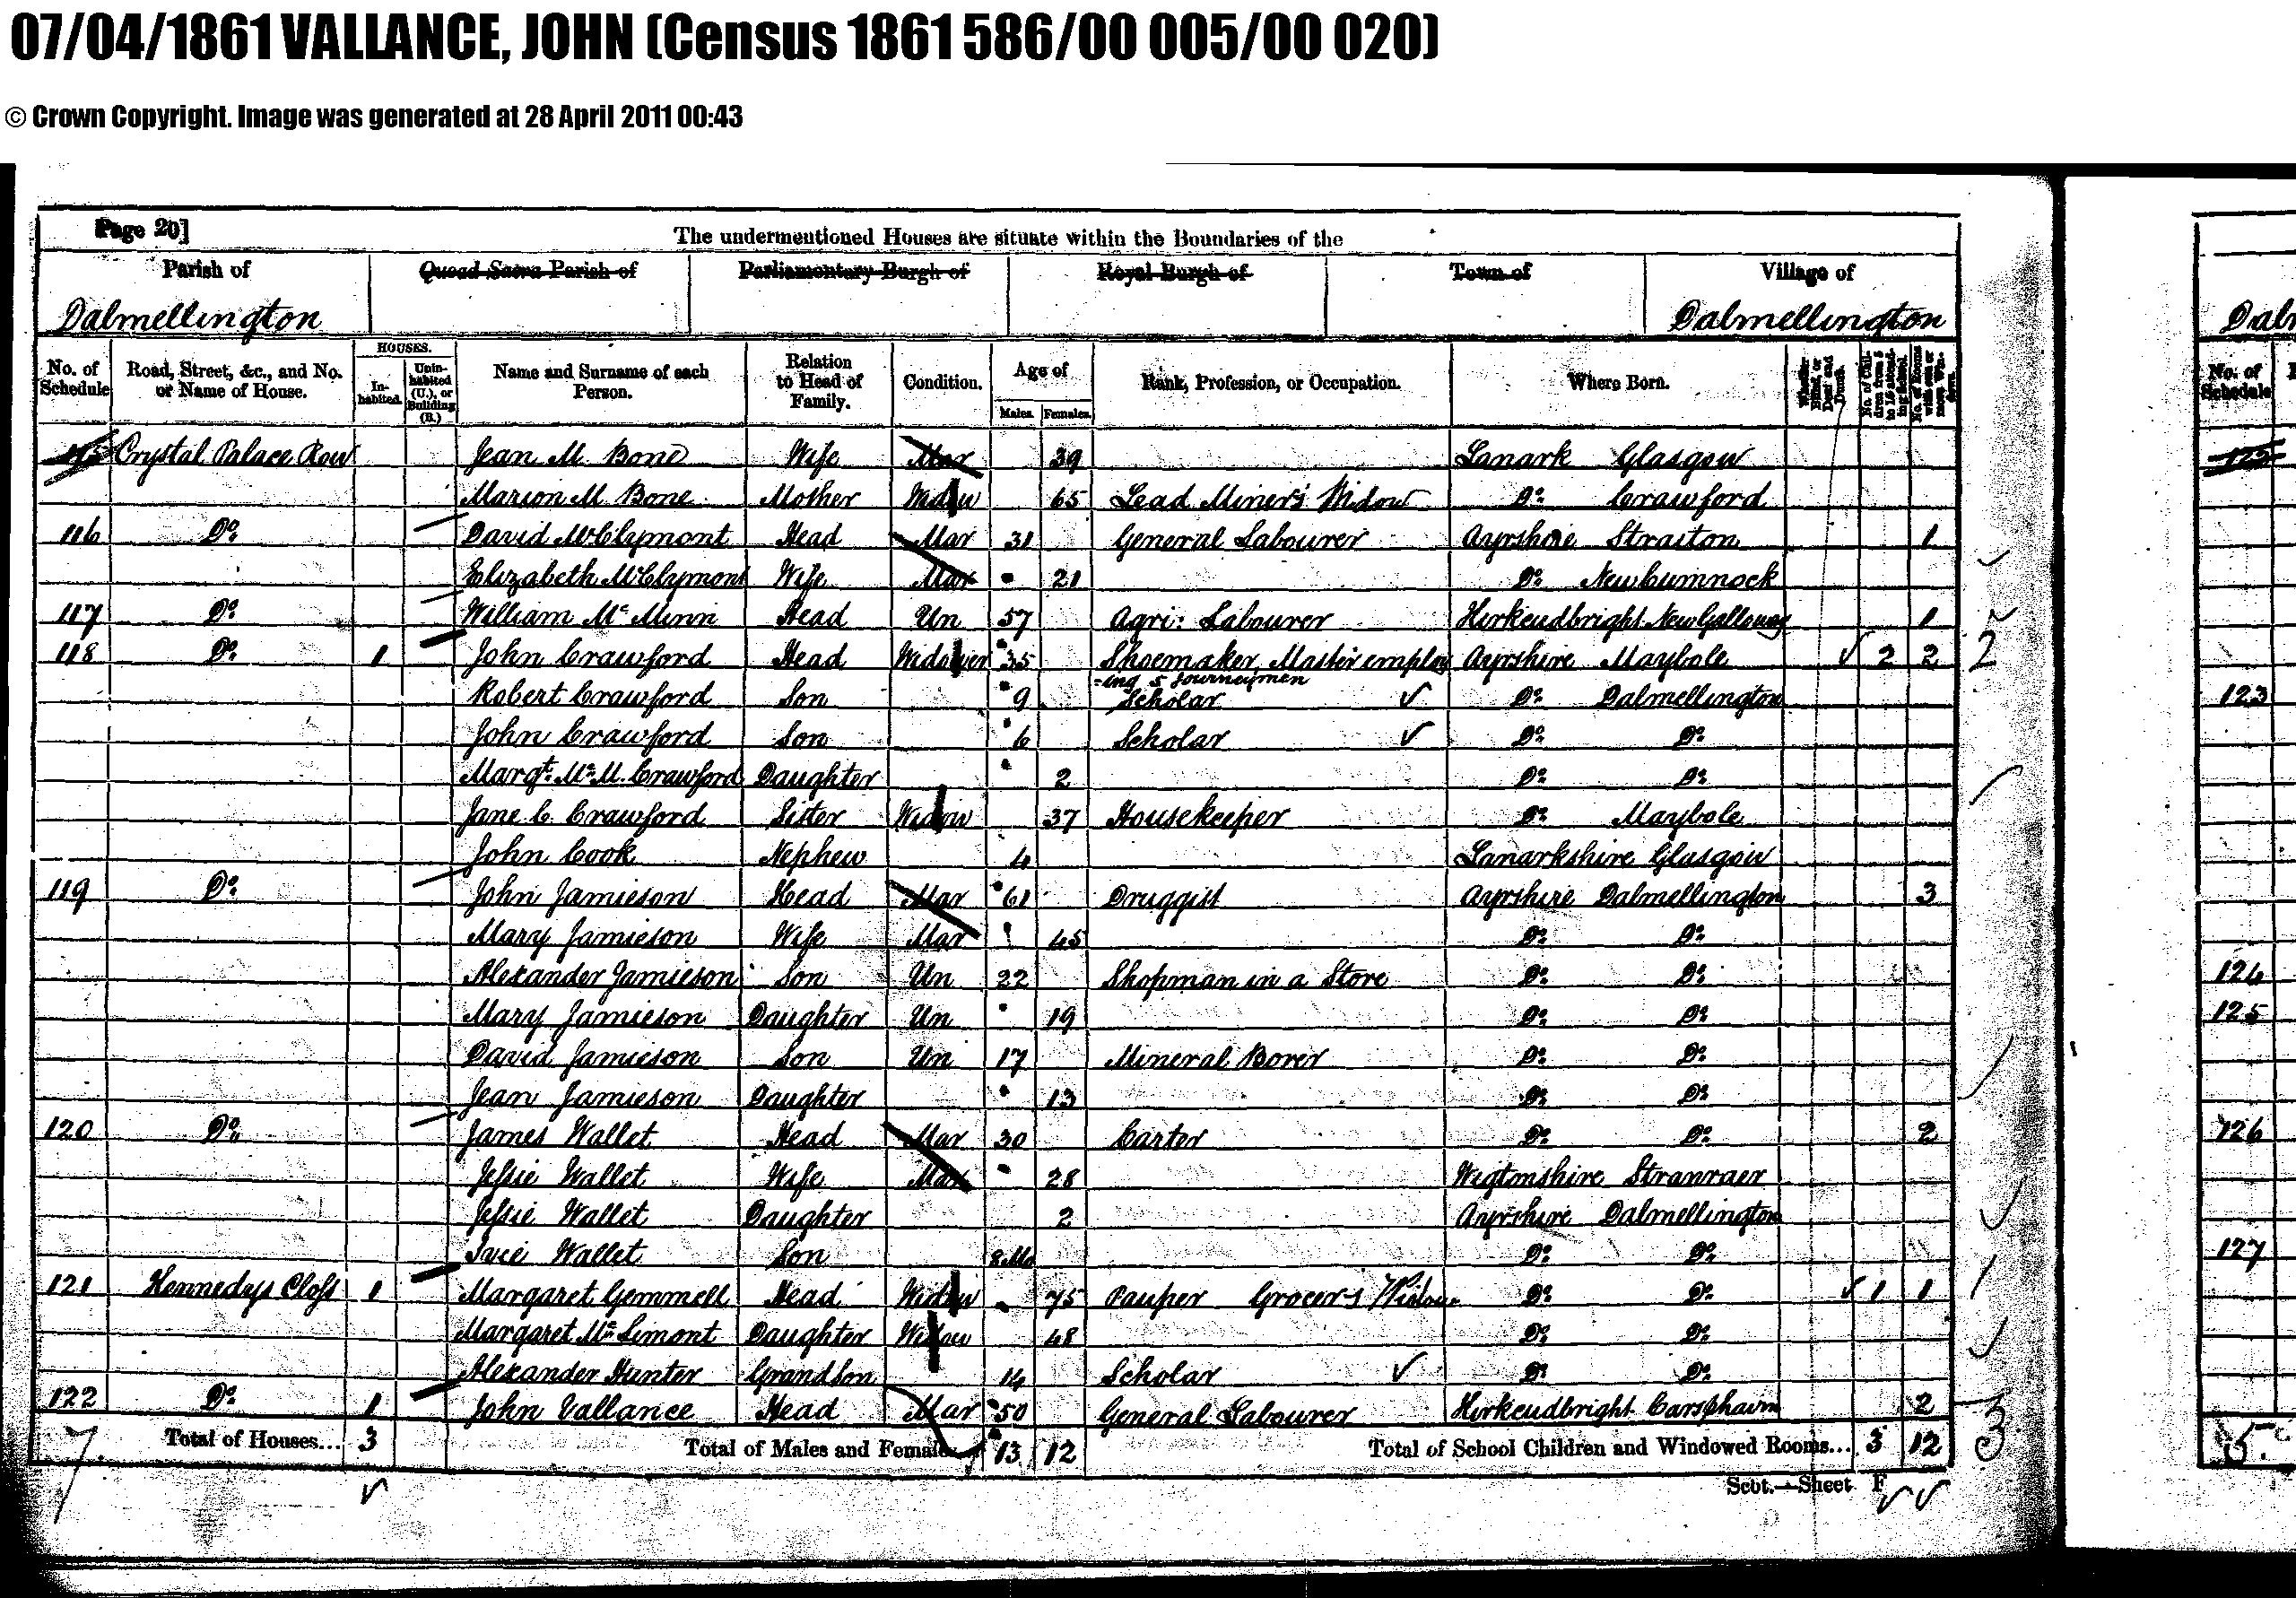 07/04/1861 VALLANCE, JOHN (Census 1861 586/00 005/00 020)
© Crown Copyright. Image was generated at 28 April 2011 00:43
Page 20]
The undermentioned Houses are situate within the Boundaries of the
Parish of Quoad Sacra Parish of Parliamentary Burgh of Royal Burgh of Town of Village of
Dalmellington Dalmellington
No. of Schedule Road, Street, &c., and No. or Name of House. HOUSES. Inhabited. Uninhabited (U.), or Building (B.) Name and Surname of each Person. Relation to Head of Family. Condition. Age of Males. Females. Rank, Profession, or Occupation. Where Born. Whether Blind, or Deaf and Dumb. No. of Children from 5 to 15 attending School. No. of Rooms with one or more Windows.
115 Crystal Palace Row Jean M. Bone Wife Mar 39 Lanark Glasgow
Marion M. Bone Mother Widow 65 Lead Miner's Widow Do. Crawford
116 Do. David McClymont Head Mar 31 General Labourer Ayrshire Straiton 1
Elizabeth McClymont Wife Mar 21 Do. New Cumnock
117 Do. William McMinn Head Un 57 Agri: Labourer Kirkcudbright New Galloway 1
118 Do. 1 John Crawford Head Widower 35 Shoemaker, Master employ Ayrshire Maybole 2 2 2
-ing 5 Journeymen
Robert Crawford Son 9 Scholar Do. Dalmellington
John Crawford Son 6 Scholar Do. Do.
Margt. McM. Crawford Daughter 2 Do. Do.
Jane C. Crawford Sister Widow 37 Housekeeper Do. Maybole
John Cook Nephew 4 Lanarkshire Glasgow
119 Do. John Jamieson Head Mar 61 Druggist Ayrshire Dalmellington 3
Mary Jamieson Wife Mar 45 Do. Do.
Alexander Jamieson Son Un 22 Shopman in a Store Do. Do.
Mary Jamieson Daughter Un 19 Do. Do.
David Jamieson Son Un 17 Mineral Borer Do. Do.
Jean Jamieson Daughter 13 Do. Do.
120 Do. James Wallet Head Mar 30 Carter Do. Do. 2
Jessie Wallet Wife Mar 28 Wigtonshire Stranraer
Jessie Wallet Daughter 2 Ayrshire Dalmellington
Wallet Son 8 Mo Do. Do.
121 Kennedys Closs 1 Margaret Gemmell Head Widow 75 Pauper Grocer's Widow Do. Do. 1 1
Margaret McLimont Daughter Widow 48 Do. Do.
Alexander Hunter Grandson 14 Scholar Do. Do.
122 Do. 1 John Vallance Head Mar 50 General Labourer Kirkcudbright Carsphairn 2
Total of Houses... 3 Total of Males and Females.. 13 12 Total of School Children and Windowed Rooms... 3 12 3
7.
Scot.—Sheet F
Dal
No. of Schedule
123
123
124
125
126
127
5.